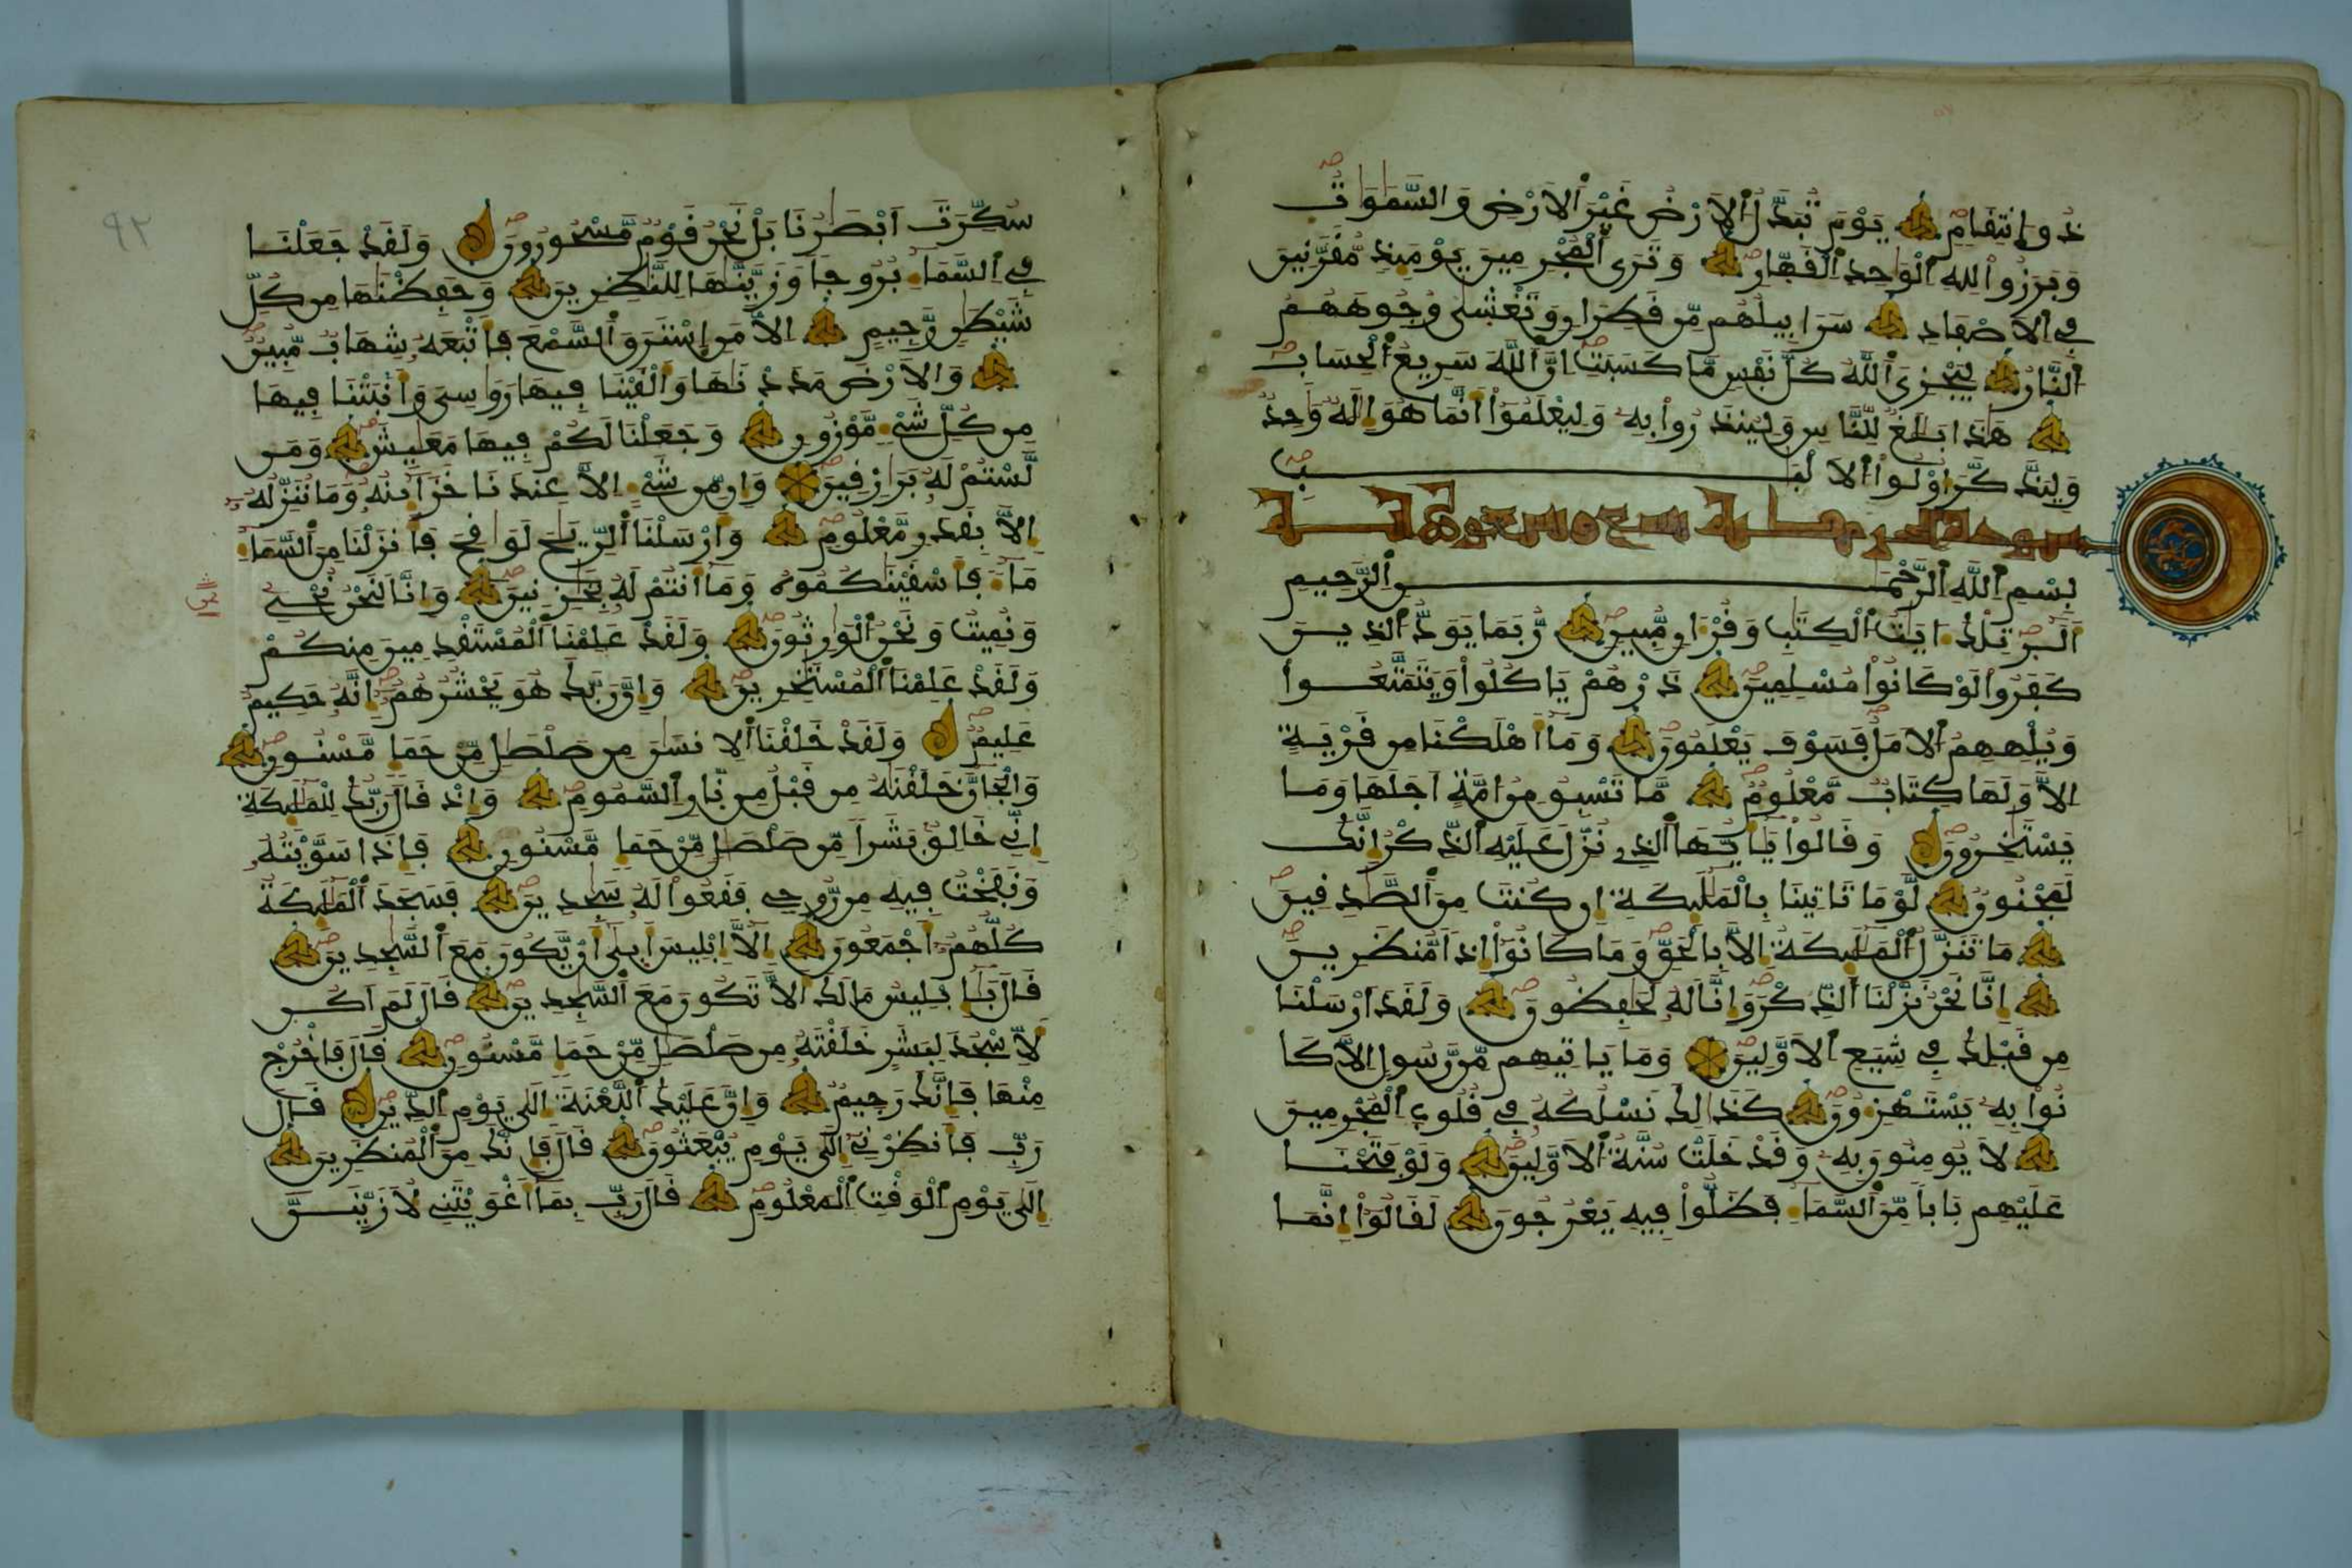 ذُو اِنتِقَامٍ يَوْمَ تُبَدَّلُ اُ۬لَارْضُ غَيْرَ اَ۬لَارْضِ وَالسَّمَٰوَٰتُ
وَبَرَزُواْ لِلهِ اِ۬لْوَٰحِدِ اِ۬لْقَهّ۪ارِ وَتَرَى اَ۬لْمُجْرِمِينَ يَوْمَئِذٖ مُّقَرَّنِينَ
فِے اِ۬لَاصْفَادِ سَرَابِيلُهُم مِّن قَطِرَانٖ وَتَغْش۪ىٰ وُجُوهَهُمُ
اُ۬لنَّارُ لِيَجْزِيَ اَ۬للَّهُ كُلَّ نَفْسٖ مَّا كَسَبَتِ اِنَّ اَ۬للَّهَ سَرِيعُ اُ۬لْحِسَابِ
هَٰذَا بَلَٰغٞ لِّلنَّاسِ وَلِيُنذَرُواْ بِهِۦ وَلِيَعْلَمُوٓاْ أَنَّمَا هُوَ إِلَٰهٞ وَٰحِدٞ
وَلِيَذَّكَّرَ أُوْلُواْ اُ۬لَالْبَٰبِ
سورة الحجر مكية تسع وتسعون آية
بِسْمِ اِ۬للَّهِ اِ۬لرَّحْمَٰنِ اِ۬لرَّحِيمِ
أَلَٓر۪ تِلْكَ ءَايَٰتُ اُ۬لْكِتَٰبِ وَقُرْءَانٖ مُّبِينٖ رُّبَمَا يَوَدُّ اُ۬لذِينَ
كَفَرُواْ لَوْ كَانُواْ مُسْلِمِينَ ذَرْهُمْ يَاكُلُواْ وَيَتَمَتَّعُواْ
وَيُلْهِهِمُ اُ۬لَامَلُ فَسَوْفَ يَعْلَمُونَ وَمَآ أَهْلَكْنَا مِن قَرْيَةٍ
اِلَّا وَلَهَا كِتَابٞ مَّعْلُومٞ مَّا تَسْبِقُ مِنُ امَّةٍ اَجَلَهَا وَمَا
يَسْتَٰخِرُونَ وَقَالُواْ يَٰٓأَيُّهَا اَ۬لذِے نُزِّلَ عَلَيْهِ اِ۬لذِّكْرُ إِنَّكَ
لَمَجْنُونٞ لَّوْ مَا تَاتِينَا بِالْمَلَٰٓئِكَةِ إِن كُنتَ مِنَ اَ۬لصَّٰدِقِينَ
مَا تَنَزَّلُ اُ۬لْمَلَٰٓئِكَةُ إِلَّا بِالْحَقِّ وَمَا كَانُوٓاْ إِذاٗ مُّنظَرِينَ
إِنَّا نَحْنُ نَزَّلْنَا اَ۬لذِّكْرَ وَإِنَّا لَهُۥ لَحَٰفِظُونَ وَلَقَدَ اَرْسَلْنَا
مِن قَبْلِكَ فِے شِيَعِ اِ۬لَاوَّلِينَ وَمَا يَاتِيهِم مِّن رَّسُولٍ اِلَّا كَا
نُواْ بِهِۦ يَسْتَهْزِءُونَ كَذَٰلِكَ نَسْلُكُهُۥ فِے قُلُوبِ اِ۬لْمُجْرِمِينَ
لَا يُومِنُونَ بِهِۦ وَقَدْ خَلَتْ سُنَّةُ اُ۬لَاوَّلِينَ وَلَوْ فَتَحْنَا
عَلَيْهِم بَاباٗ مِّنَ اَ۬لسَّمَآءِ فَظَلُّواْ فِيهِ يَعْرُجُونَ لَقَالُوٓاْ إِنَّمَا
سُكِّرَتَ اَبْصَٰرُنَا بَلْ نَحْنُ قَوْمٞ مَّسْحُورُونَ وَلَقَدْ جَعَلْنَا
فِے اِ۬لسَّمَآءِ بُرُوجاٗ وَزَيَّنَّٰهَا لِلنَّٰظِرِينَ وَحَفِظْنَٰهَا مِن كُلِّ
شَيْطَٰنٖ رَّجِيمٍ اِلَّا مَنِ اِ۪سْتَرَقَ اَ۬لسَّمْعَ فَأَتْبَعَهُۥ شِهَابٞ مُّبِينٞ
وَالَارْضَ مَدَدْنَٰهَا وَأَلْقَيْنَا فِيهَا رَوَٰسِيَ وَأَنۢبَتْنَا فِيهَا
مِن كُلِّ شَےْءٖ مَّوْزُونٖ وَجَعَلْنَا لَكُمْ فِيهَا مَعَٰيِشَ وَمَن
لَّسْتُمْ لَهُۥ بِرَٰزِقِينَ وَإِن مِّن شَےْءٍ اِلَّا عِندَنَا خَزَآئِنُهُۥ وَمَا نُنَزِّلُهُۥٓ
إِلَّا بِقَدَرٖ مَّعْلُومٖ وَأَرْسَلْنَا اَ۬لرِّيَٰحَ لَوَٰقِحَ فَأَنزَلْنَا مِنَ اَ۬لسَّمَآءِ
مَآءٗ فَأَسْقَيْنَٰكُمُوهُ وَمَآ أَنتُمْ لَهُۥ بِخَٰزِنِينَ وَإِنَّا لَنَحْنُ نُحْيِۦ
وَنُمِيتُ وَنَحْنُ اُ۬لْوَٰرِثُونَ وَلَقَدْ عَلِمْنَا اَ۬لْمُسْتَقْدِمِينَ مِنكُمْ
وَلَقَدْ عَلِمْنَا اَ۬لْمُسْتَٰخِرِينَ وَإِنَّ رَبَّكَ هُوَ يَحْشُرُهُمُۥٓ إِنَّهُۥ حَكِيمٌ
عَلِيمٞ وَلَقَدْ خَلَقْنَا اَ۬لِانسَٰنَ مِن صَلْصَٰلٖ مِّنْ حَمَإٖ مَّسْنُونٖ
وَالْجَآنَّ خَلَقْنَٰهُ مِن قَبْلُ مِن نّ۪ارِ اِ۬لسَّمُومِ وَإِذْ قَالَ رَبُّكَ لِلْمَلَٰٓئِكَةِ
إِنِّے خَٰلِقُۢ بَشَراٗ مِّن صَلْصَٰلٖ مِّنْ حَمَإٖ مَّسْنُونٖ فَإِذَا سَوَّيْتُهُۥ
وَنَفَخْتُ فِيهِ مِن رُّوحِے فَقَعُواْ لَهُۥ سَٰجِدِينَ فَسَجَدَ اَ۬لْمَلَٰٓئِكَةُ
كُلُّهُمُۥٓ أَجْمَعُونَ إِلَّآ إِبْلِيسَ أَب۪ىٰٓ أَنْ يَّكُونَ مَعَ اَ۬لسَّٰجِدِينَ
قَالَ يَٰٓإِبْلِيسُ مَا لَكَ أَلَّا تَكُونَ مَعَ اَ۬لسَّٰجِدِينَ قَالَ لَمَ اَكُن
لِّأَسْجُدَ لِبَشَرٍ خَلَقْتَهُۥ مِن صَلْصَٰلٖ مِّنْ حَمَإٖ مَّسْنُونٖ قَالَ فَاخْرُجْ
مِنْهَا فَإِنَّكَ رَجِيمٞ وَإِنَّ عَلَيْكَ اَ۬للَّعْنَةَ إِلَىٰ يَوْمِ اِ۬لدِّينِ قَالَ
رَبِّ فَأَنظِرْنِےٓ إِلَىٰ يَوْمِ يُبْعَثُونَ قَالَ فَإِنَّكَ مِنَ اَ۬لْمُنظَرِينَ
إِلَىٰ يَوْمِ اِ۬لْوَقْتِ اِ۬لْمَعْلُومِ قَالَ رَبِّ بِمَآ أَغْوَيْتَنِے لَأُزَيِّنَنَّ
٩٢